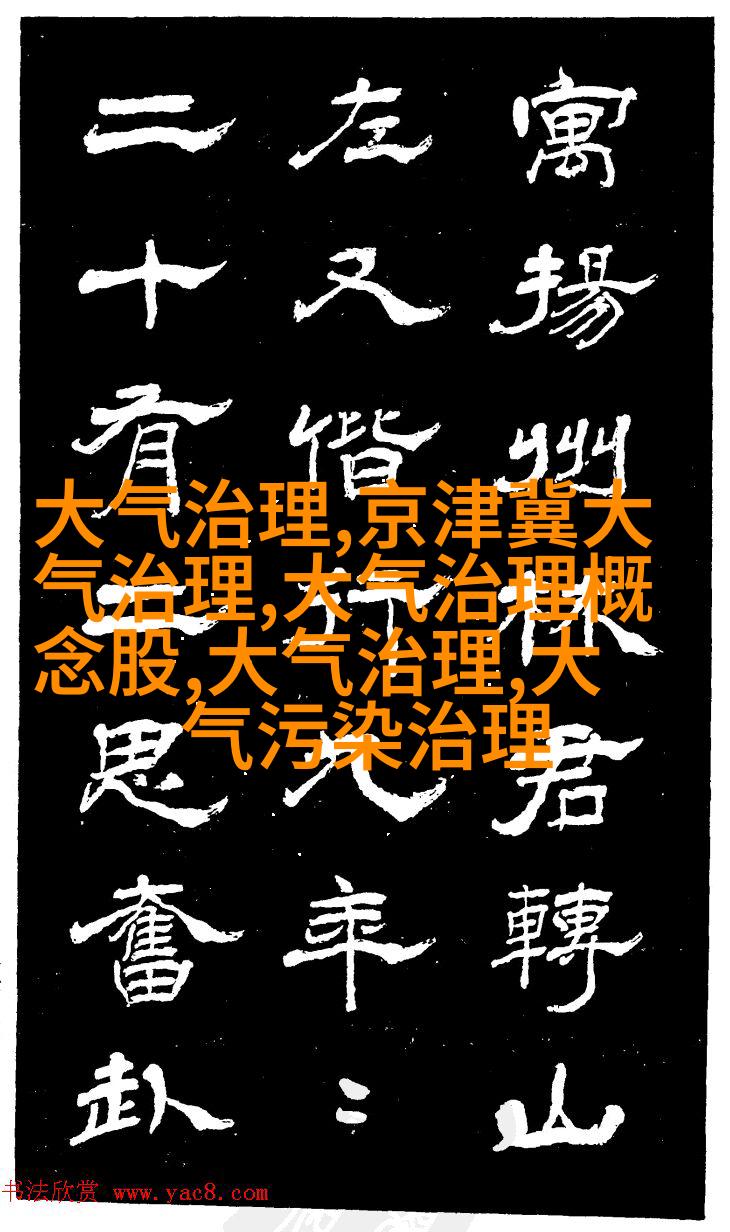 寓揚州林君轉山
左又偕行九年〻
二十有二思奮赴
大气治理,京津冀大
气治理,大气治理概
念股,大气治理,大
气污染治理
书法欣赏 www.yac8.com